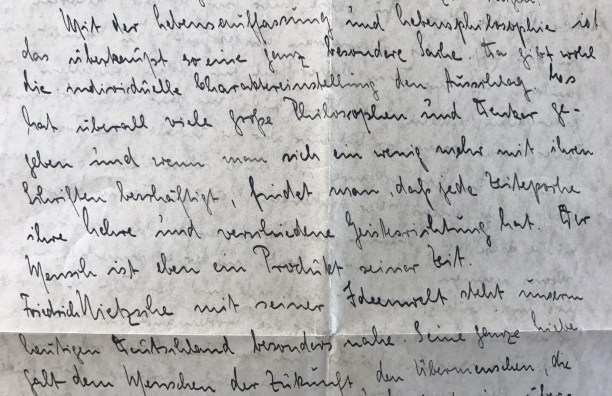 Mit der Lebensauffassung und Lebensphilosophie ist
das überhaupt so eine ganz besondere Sache. Da gibt wohl
die individuelle Charaktereinstellung den Ausschlag. Es
hat überall viele große Philosophen und Denker ge-
geben und wenn man sich ein wenig mehr mit ihren
Schriften beschäftigt, findet man, daß jede Zeitepoche
ihre Lehre und verschiedene Geistesrichtung hat. Der
Mensch ist eben ein Produkt seiner Zeit.
Friedrich Nietzsche mit seiner Ideenwelt steht unserm
heutigen Deutschland besonders nahe. Seine ganze Liebe
galt dem Menschen der Zukunft, den Übermenschen, die